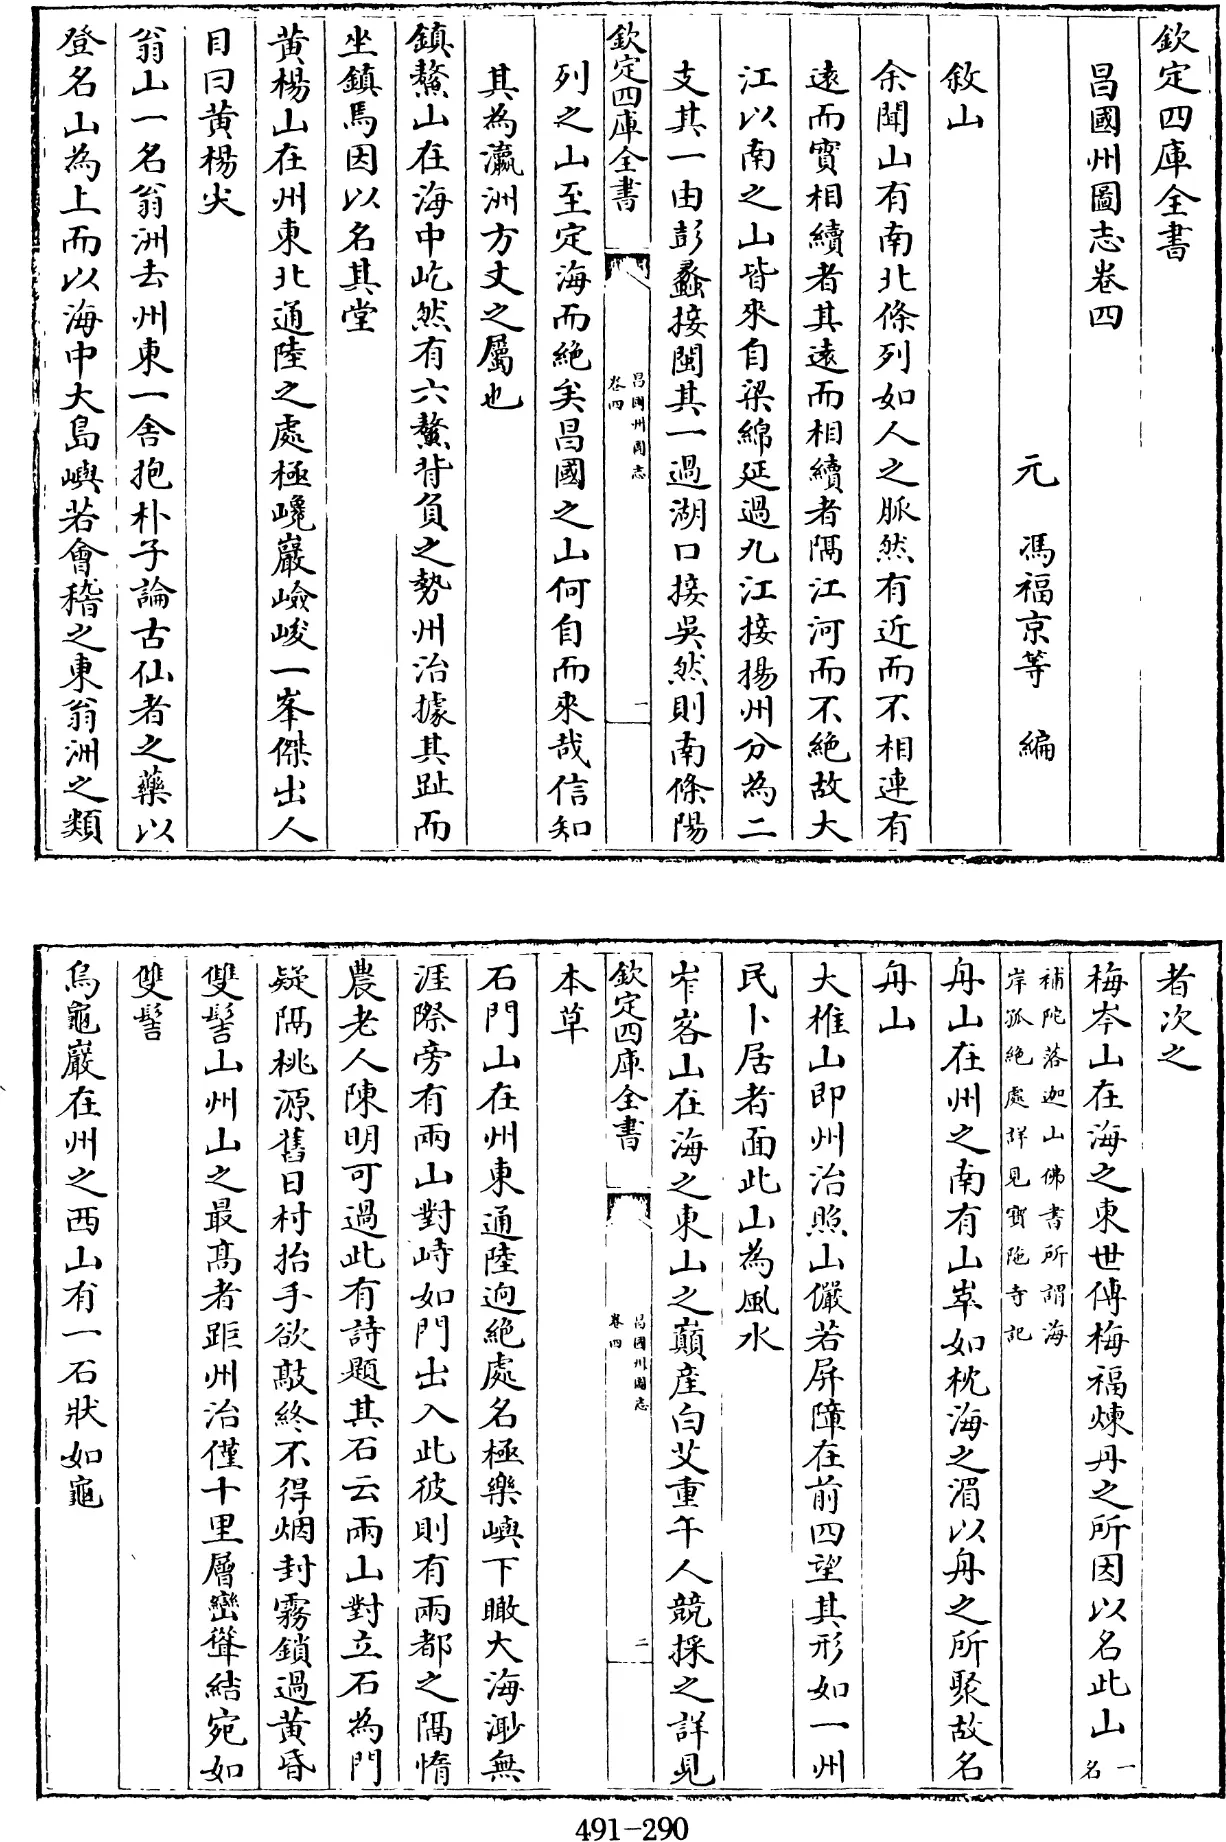 欽定四庫全書
昌國州圖志卷四
元　馮福京等　編
敘山
余聞山有南北條列如人之脈然有近而不相連有
遠而實相續者其遠而相續者隔江河而不絶故大
江以南之山皆來自梁綿延過九江接揚州分為二
支其一由彭蠡接閩其一過湖口接吳然則南條陽
欽定四庫全書
昌國州圖志
卷四
一
列之山至定海而絶矣昌國之山何自而來哉信知
其為瀛洲方丈之屬也
鎮鰲山在海中屹然有六鰲背負之勢州治據其趾而
坐鎮焉因以名其堂
黄楊山在州東北通陸之處極巉巖嶮峻一峯傑出人
目曰黄楊尖
翁山一名翁洲去州東一舍抱朴子論古仙者之藥以
登名山為上而以海中大島嶼若會稽之東翁洲之類
者次之
梅岑山在海之東世傳梅福煉丹之所因以名此山一名
補陀落迦山佛書所謂海
岸孤絶處詳見寶陁寺記
舟山在州之南有山崒如枕海之湄以舟之所聚故名
舟山
大椎山即州治照山儼若屏障在前四望其形如一州
民卜居者面此山為風水
岞峉山在海之東山之巔産白艾重午人競採之詳見
欽定四庫全書
昌國州圖志
卷四
二
本草
石門山在州東通陸逈絶處名極樂嶼下瞰大海渺無
涯際旁有兩山對峙如門出入此彼則有兩都之隔惰
農老人陳明可過此有詩題其石云兩山對立石為門
疑隔桃源舊日村抬手欲敲終不得烟封霧鎖過黄昏
雙髻山州山之最高者距州治僅十里層巒聳結宛如
雙髻
烏龜巖在州之西山有一石狀如龜
491-290